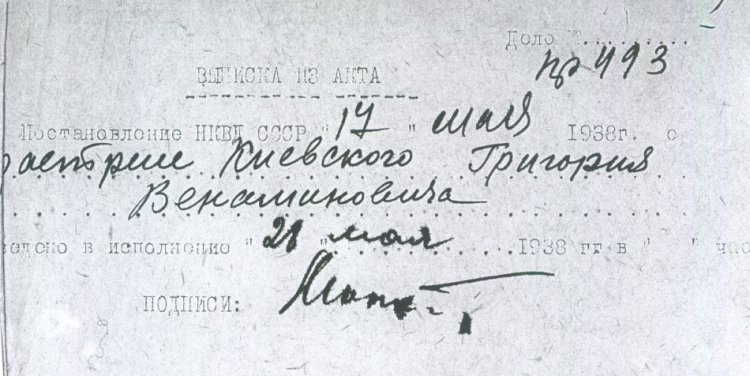 Дело №..........
пр 493
ВЫПИСКА ИЗ АКТА
Постановление НКВД СССР "17" мая 1938г. о
расстреле Киевского Григория
Вениаминовича
ведено в исполнение "28" мая...........1938 гг в " " час
ПОДПИСИ: